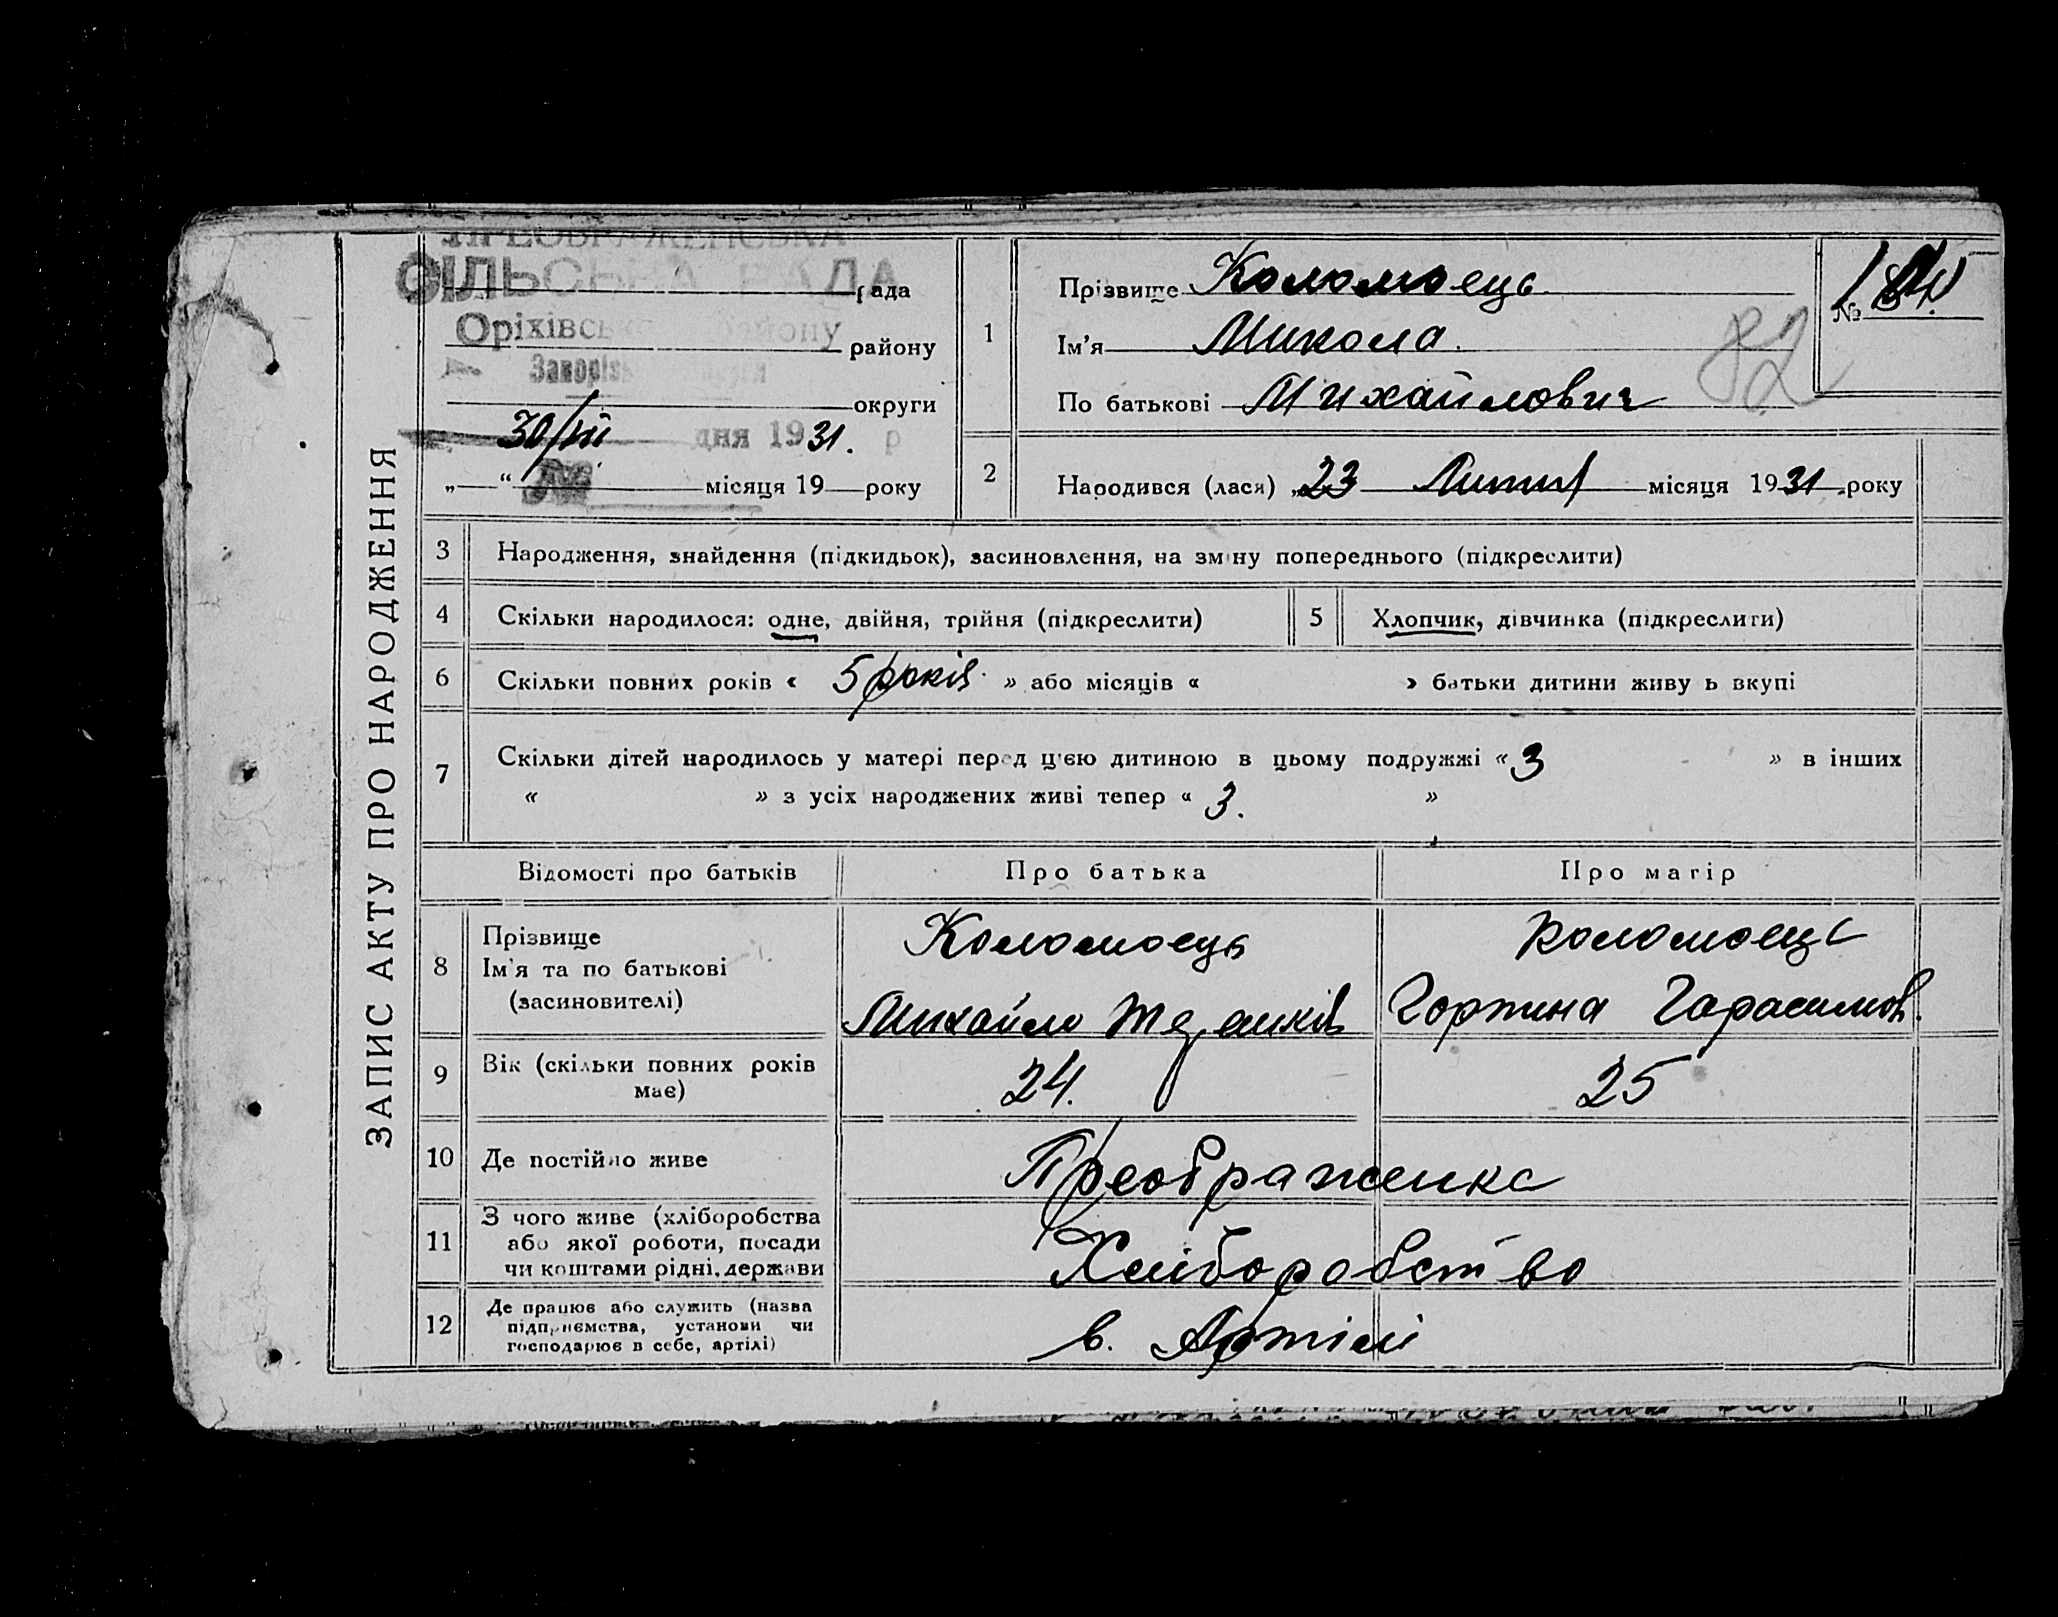 ЗАПИС АКТУ ПРО НАРОДЖЕННЯ
ПРЕОБРАЖЕНСЬКА
СІЛЬСЬКА РАДА
рада
Оріхівського району
району
округи
30/VII дня 1931. р
„ “ місяця 19 року
1
Прізвище Коломоєць
Ім'я Микола.
По батькові Михайлович
№
82
2
Народився (лася) „23 Липня місяця 1931 року
3 Народження, знайдення (підкидьок), засиновлення, на зміну попереднього (підкреслити)
4 Скільки народилося: одне, двійня, трійня (підкреслити)
5 Хлопчик, дівчинка (підкреслити)
6 Скільки повних років « 5 років » або місяців « » батьки дитини живуть вкупі
7 Скільки дітей народилось у матері перед цією дитиною в цьому подружжі « 3 » в інших
« » з усіх народжених живі тепер « 3. »
Відомості про батьків Про батька Про матір
8 Прізвище
Ім'я та по батькові
(засиновителі)
Коломоєць
Михайло
Коломоєць
Горпина Гарасимов.
9 Вік (скільки повних років
має)
24. 25
10 Де постійно живе Преображенка
11 З чого живе (хліборобства
або якої роботи, посади
чи коштами рідні, держави
Хліборобство
12 Де працює або служить (назва
підприємства, установи чи
господарює в себе, артілі)
в. Артілі